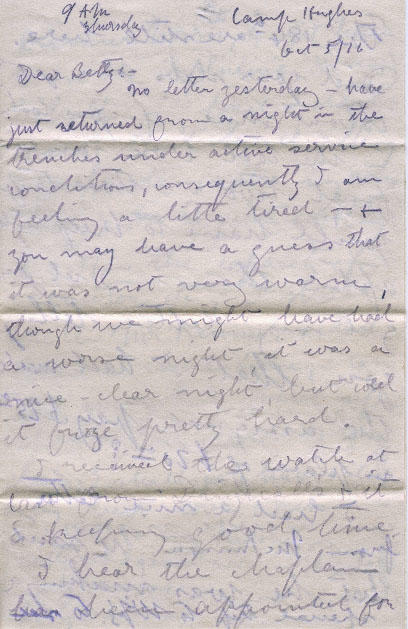 9 AM Camp Hughes
Thursday Oct 5/16
Dear Betty:-
no letter yesterday - have
just returned from a night in the
trenches under active service
conditions, consequently I am
feeling a little tired - +
you may have a guess that
it was not very warm,
though we might have had
a worse night, it was a
nice - clear night, but well
it froze pretty hard.
I received the watch at
last from & it
keeping good time
I hear the chaplain
been appointed for